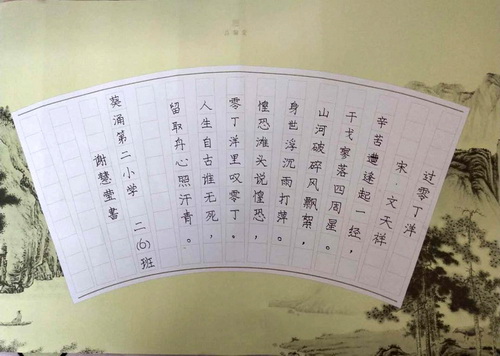 过零丁洋
宋.文天祥
辛苦遭逢起一经，
干戈寥落四周星。
山河破碎风飘絮，
身世浮沉雨打萍。
惶恐滩头说惶恐，
零丁洋里叹零丁。
人生自古谁无死，
留取舟心照汗青。
葵涌第二小学 二(6)班
谢慧莹书